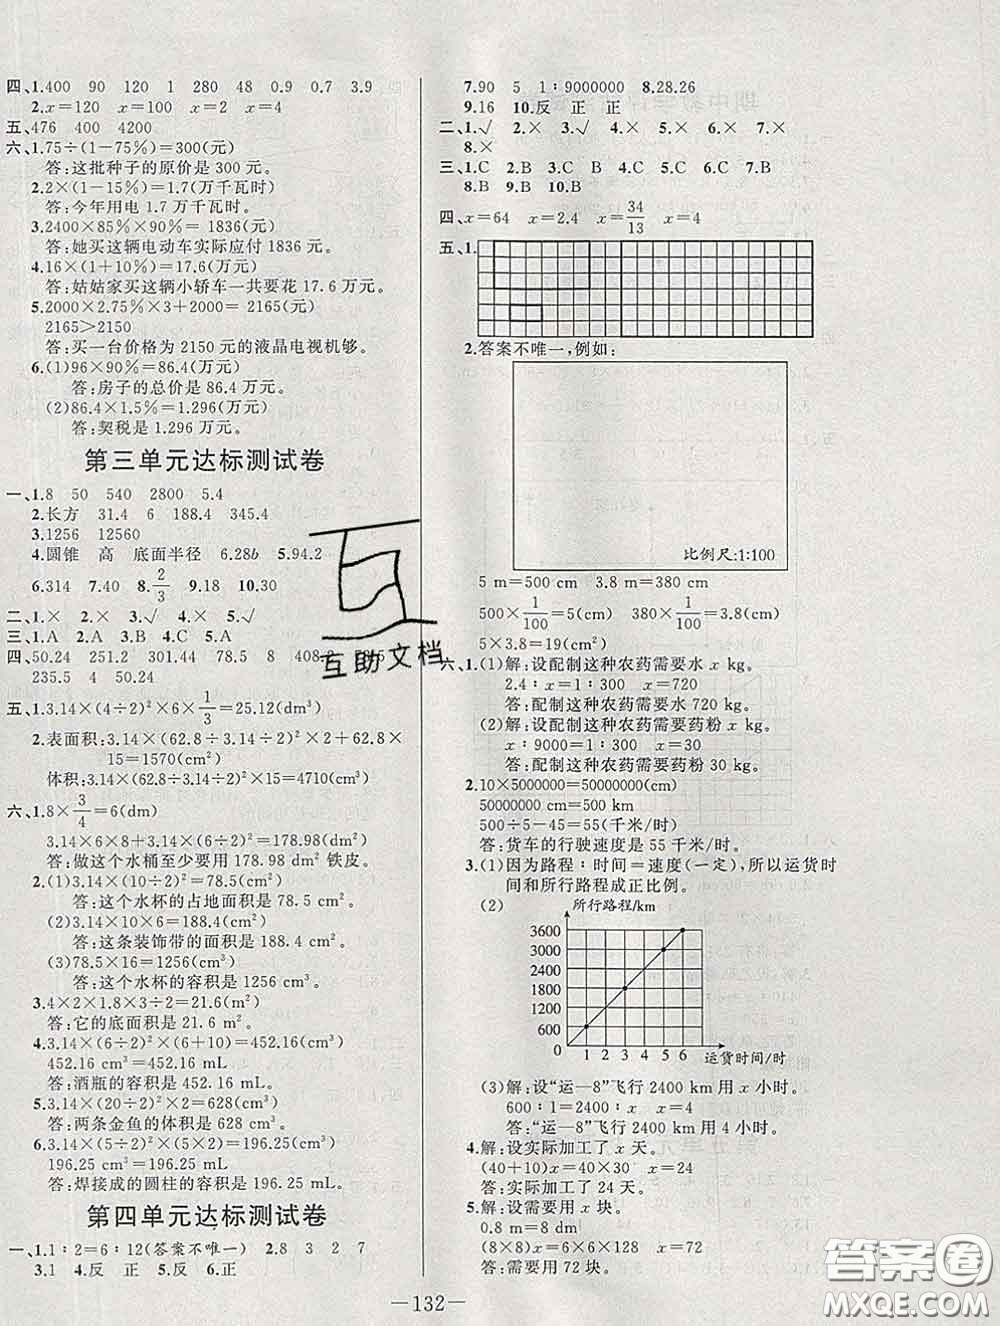 四、1.400 90 120 1 280 48 0.9 0.7 3.9
2.x=120 x=100 x=2 x=4
五、476 400 4200
六、1.75÷(1-75%)=300(元)
答:这批种子的原价是 300 元。
2.2×(1-15%)=1.7(万千瓦时)
答:今年用电 1.7 万千瓦时。
3.2400×85%×90%= 1836(元)
答:她买这辆电动车实际应付 1836 元。
4.16×(1+10%)=17.6(万元)
答:姑姑家买这辆小轿车一共要花 17.6 万元。
5.2000×2.75%×3+2000= 2165(元)
2165>2150
答:买一台价格为 2150 元的液晶电视机够。
6.(1)96×90%=86.4(万元)
答:房子的总价是 86.4 万元。
(2)86.4×1.5%=1.296(万元)
答:契税是 1.296 万元。
第三单元达标测试卷
一、1.8 50 540 2800 5.4
2.长方 31.4 6 188.4 345.4
3.1256 12560
4.圆锥 高 底面半径 6.28b 5.94.2
6.314 7.40 8.2/3 9.18 10.30
二、1.× 2.× 3.√ 4.× 5.√
三、1.A 2.A 3.B 4.C 5.A
四、50.24 251.2 301.44 78.5 8 408.2
235.5 4 50.24
五、1.3.14×(4÷2)²×6×1/3=25.12(dm³)
2.表面积:3.14×(62.8÷3.14÷2)²×2+62.8×
15=1570(cm²)
体积:3.14×(62.8÷3.14÷2)²×15=4710(cm³)
六、1.8×3/4=6(dm)
3.14×6×8+3.14×(6÷2)²=178.98(dm²)
答:做这个水桶至少要用 178.98 dm² 铁皮。
2.(1)3.14×(10÷2)²=78.5(cm²)
答:这个水杯的占地面积是 78.5 cm²。
(2)3.14×10×6=188.4(cm²)
答:这条装饰带的面积是 188.4 cm²。
(3)78.5×16=1256(cm³)
答:这个水杯的容积是 1256 cm³。
3.4×2×1.8×3÷2=21.6(m²)
答:它的底面积是 21.6 m²。
4.3.14×(6÷2)²×(6+10)=452.16(cm³)
452.16 cm³=452.16 mL
答:酒瓶的容积是 452.16 mL。
5.3.14×(20÷2)²×2=628(cm³)
答:两条金鱼的体积是 628 cm³。
6.3.14×(5÷2)²×(5×2)=196.25(cm³)
196.25 cm³=196.25 mL
答:焊接成的圆柱的容积是 196.25 mL。
第四单元达标测试卷
一、1.1∶2=6∶12(答案不唯一) 2.8 3 2 7
3.1 4.反 正 5.反 6.正
7.90 5 1∶9000000 8.28.26
9.16 10.反 正 正
二、1.√ 2.× 3.√ 4.× 5.× 6.× 7.×
8.×
三、1.C 2.B 3.C B 4.C 5.B 6.C 7.B
8.B 9.B 10.B
四、x=64 x=2.4 x=34/13 x=4
五、1.
2.答案不唯一,例如:
比例尺:1:100
5 m=500 cm 3.8 m=380 cm
500×1/100=5(cm) 380×1/100=3.8(cm)
5×3.8=19(cm²)
六、1.(1)解:设配制这种农药需要水 x kg。
2.4∶x=1∶300 x=720
答:配制这种农药需要水 720 kg。
(2)解:设配制这种农药需要药粉 x kg。
x∶9000=1∶300 x=30
答:配制这种农药需要药粉 30 kg。
2.10×5000000=50000000(cm)
50000000 cm=500 km
500÷5-45=55(千米/时)
答:货车的行驶速度是 55 千米/时。
3.(1)因为路程∶时间=速度(一定),所以运货时
间和所行路程成正比例。
(2) 所行路程/km
3600
3000
2400
1800
1200
600
0 1 2 3 4 5 6 运货时间/时
(3)解:设“运—8”飞行 2400 km 用 x 小时。
600∶1=2400∶x x=4
答:“运—8”飞行 2400 km 用 4 小时。
4.解:设实际加工了 x 天。
(40+10)x=40×30 x=24
答:实际加工了 24 天。
5.解:设需要用 x 块。
0.8 m=8 dm
(8×8)x=6×6×128 x=72
答:需要用 72 块。
—132—
互助文档
答案圈
MXQE.COM